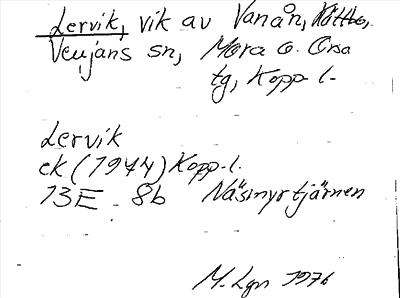 Lervik, vik av Vanån,
Venjans sn, Mora o. Orsa
tg, Kopp l-
Lervik
ek (1944) Kopp-l.
13E - 8b Näsmyrtjärnen
M. Lgn 1976